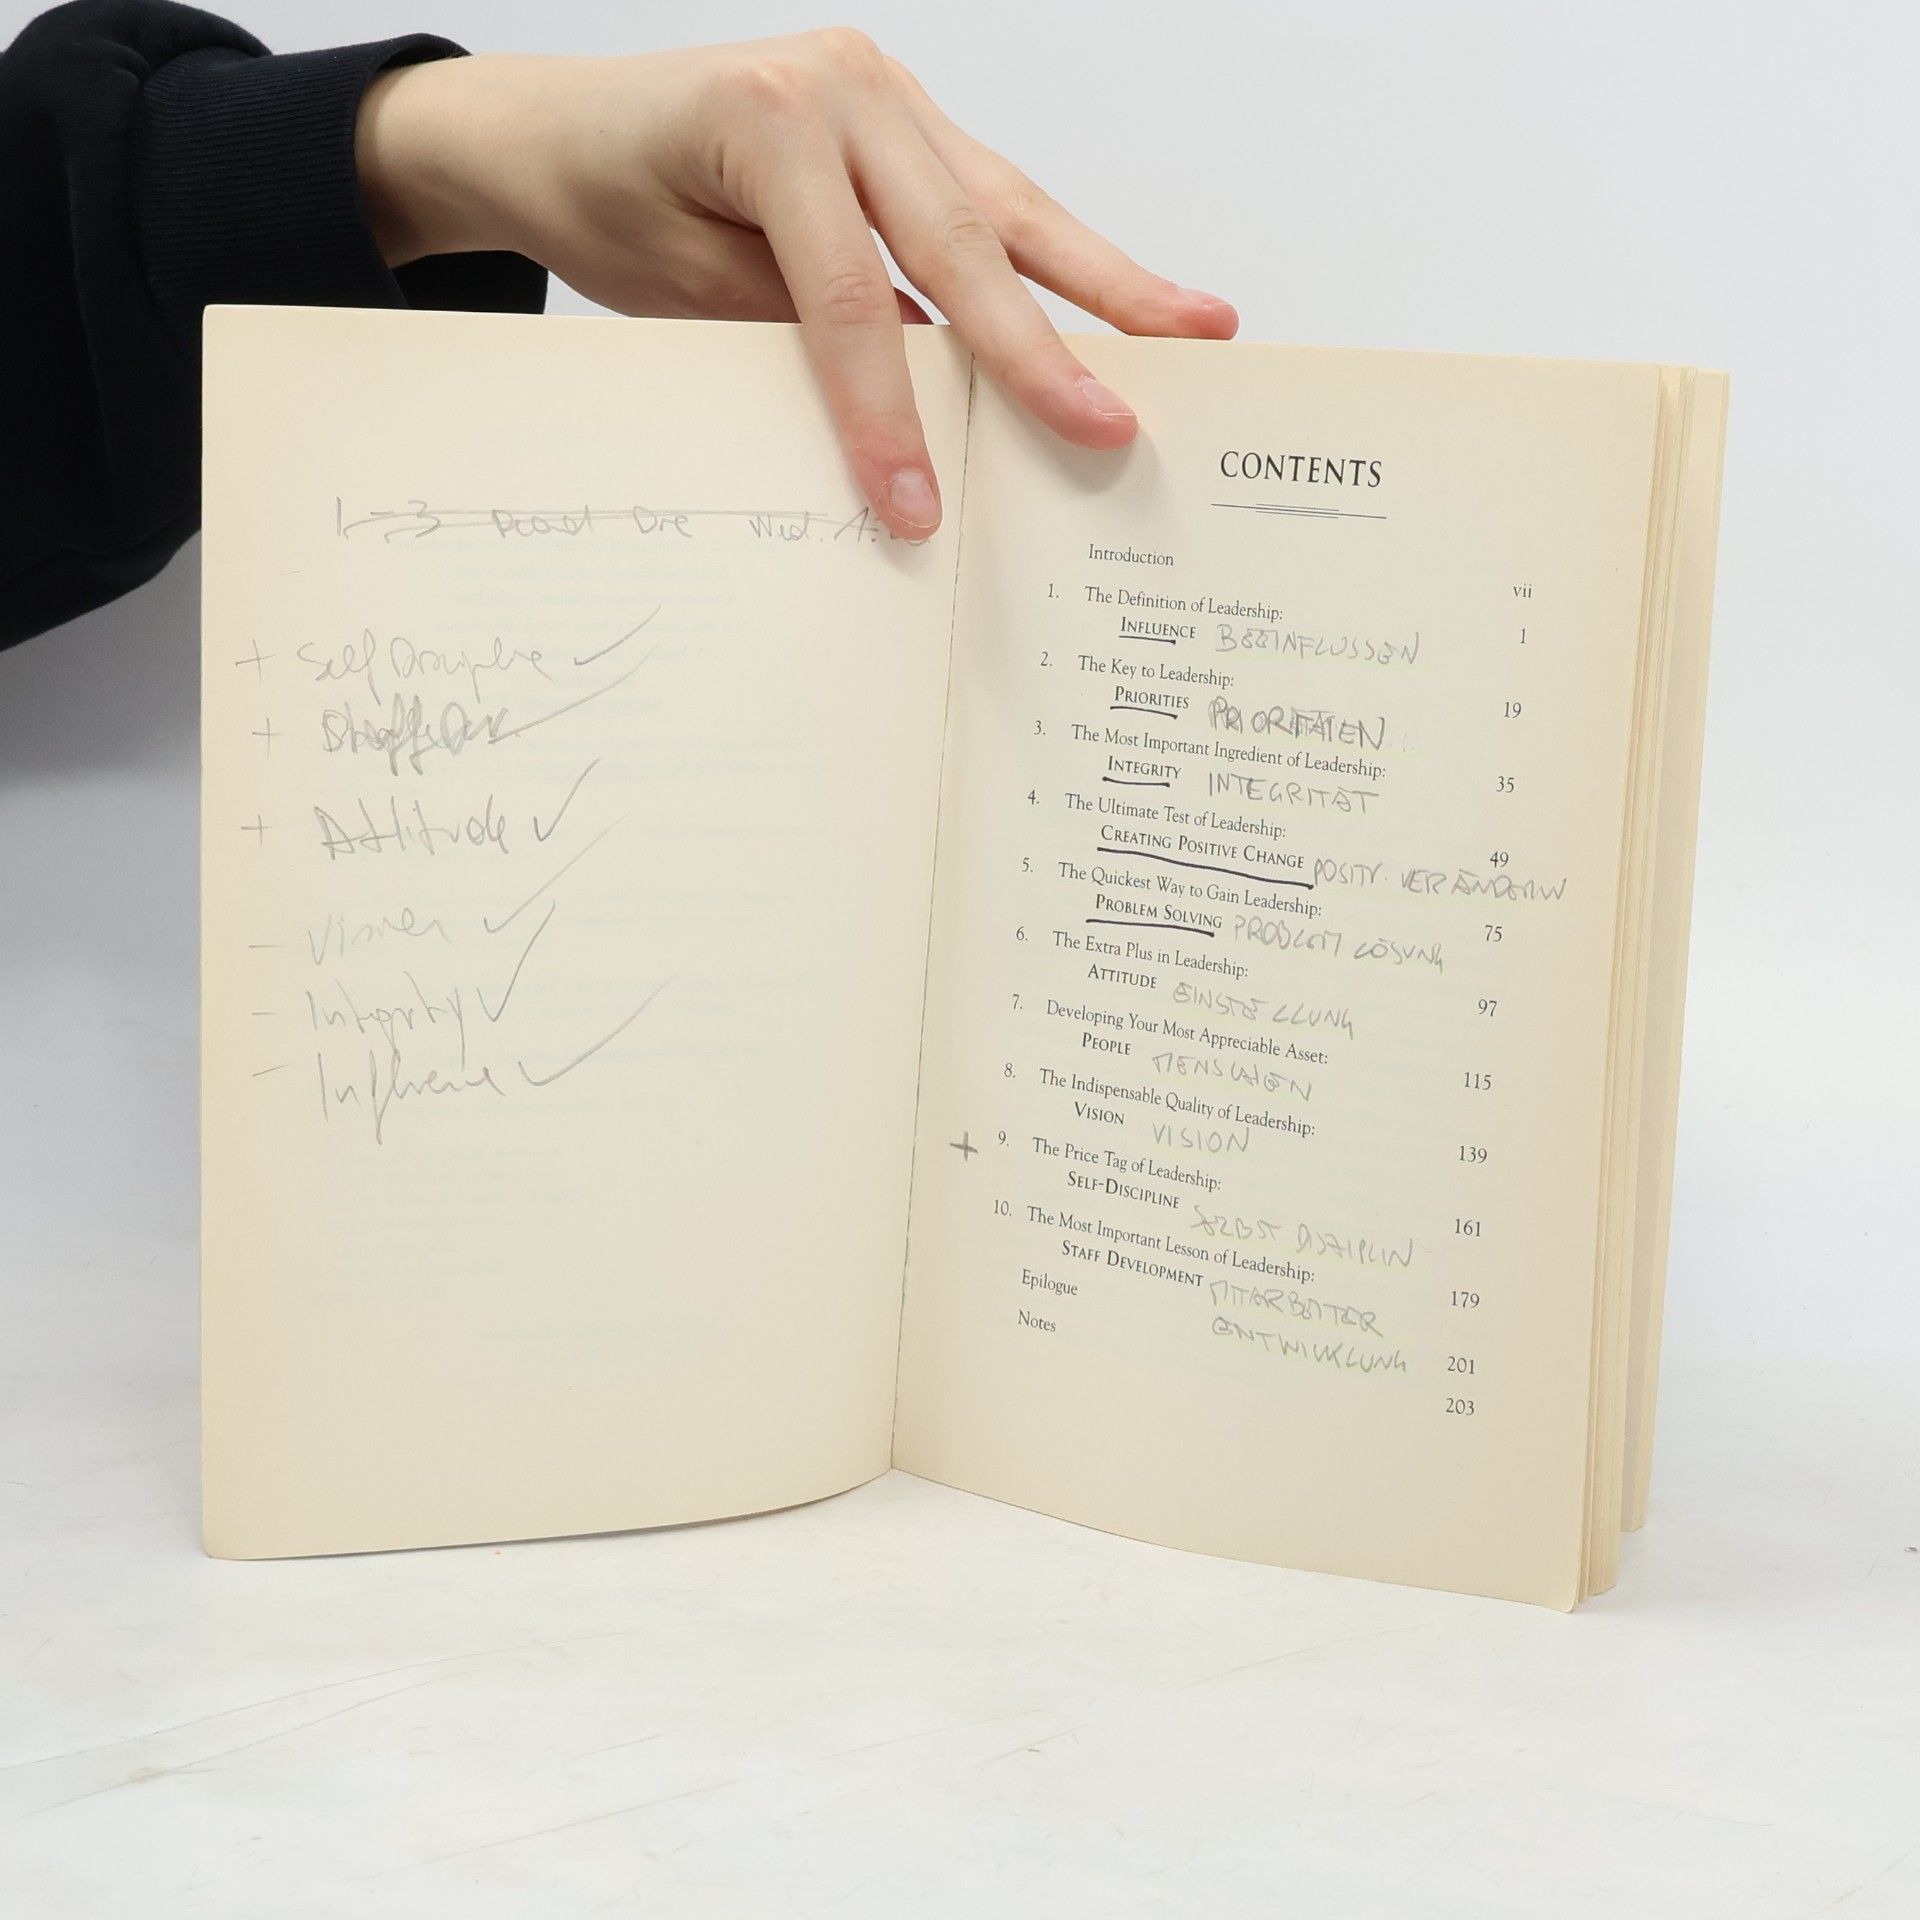 1-3 Wed.
+ Self Discipline ✓
+ Staff
+ Attitude ✓
- Vision ✓
- Integrity ✓
- Influence ✓
CONTENTS
Introduction vii
1. The Definition of Leadership: 1
INFLUENCE BEEINFLUSSEN
2. The Key to Leadership: 19
PRIORITIES PRIORITÄTEN
3. The Most Important Ingredient of Leadership: 35
INTEGRITY INTEGRITÄT
4. The Ultimate Test of Leadership: 49
CREATING POSITIVE CHANGE POSITIV. VERÄNDERUN
5. The Quickest Way to Gain Leadership: 75
PROBLEM SOLVING PROBLEM LÖSUNG
6. The Extra Plus in Leadership: 97
ATTITUDE EINSTELLUNG
7. Developing Your Most Appreciable Asset: 115
PEOPLE MENSCHEN
8. The Indispensable Quality of Leadership: 139
VISION VISION
+ 9. The Price Tag of Leadership: 161
SELF-DISCIPLINE SELBST DISZIPLIN
10. The Most Important Lesson of Leadership: 179
STAFF DEVELOPMENT MITARBEITER
ENTWICKLUNG
Epilogue 201
Notes 203